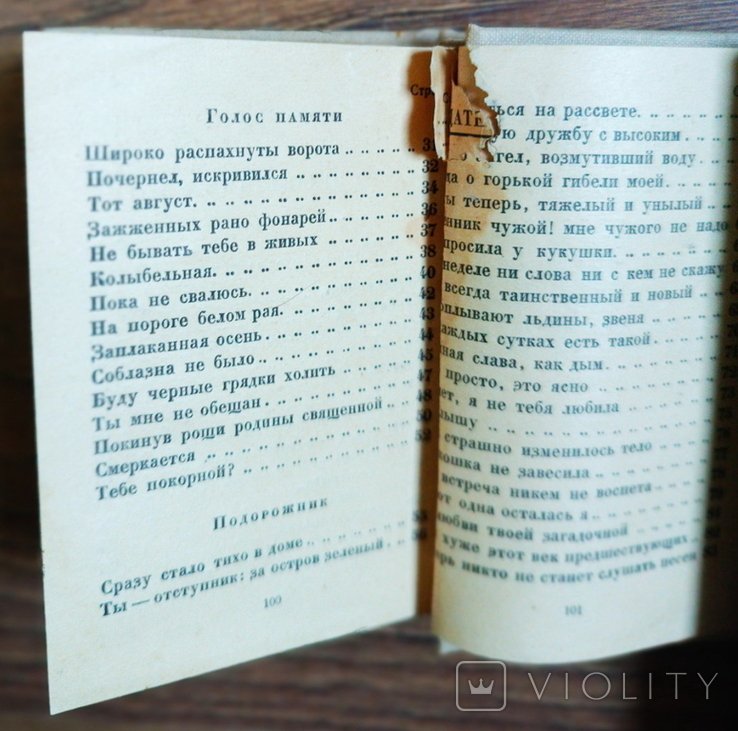 Стр
Голос памяти
Широко распахнуты ворота 31
Почернел, искривился 32
Тот август. 34
Зажженных рано фонарей 36
Не бывать тебе в живых 37
Колыбельная. 38
Пока не свалюсь. 40
На пороге белом рая. 42
Заплаканная осень 43
Соблазна не было 44
Буду черные грядки холить 45
Ты мне не обещан 47
Покинув рощи родины священной 48
Смеркается 50
Тебе покорной? 52
Подорожник
Сразу стало тихо в доме
Ты — отступник: за остров зеленый
100
ЦАТЕ
ься на рассвете.
ую дружбу с высоким
гел, возмутивший воду
да о горькой гибели моей.
ы теперь, тяжелый и унылый
нник чужой! мне чужого не надо
просила у кукушки.
неделе ни слова ни с кем не скажу
всегда таинственный и новый
плывают льдины, звеня
аждых сутках есть такой.
ная слава, как дым.
просто, это ясно
ет, я не тебя любила
ышу
страшно изменилось тело
ошка не завесила
встреча никем не воспета
от одна осталась я
любви твоей загадочной
хуже этот век предшествующих
ерь никто не станет слушать песен
101
VIOLITY